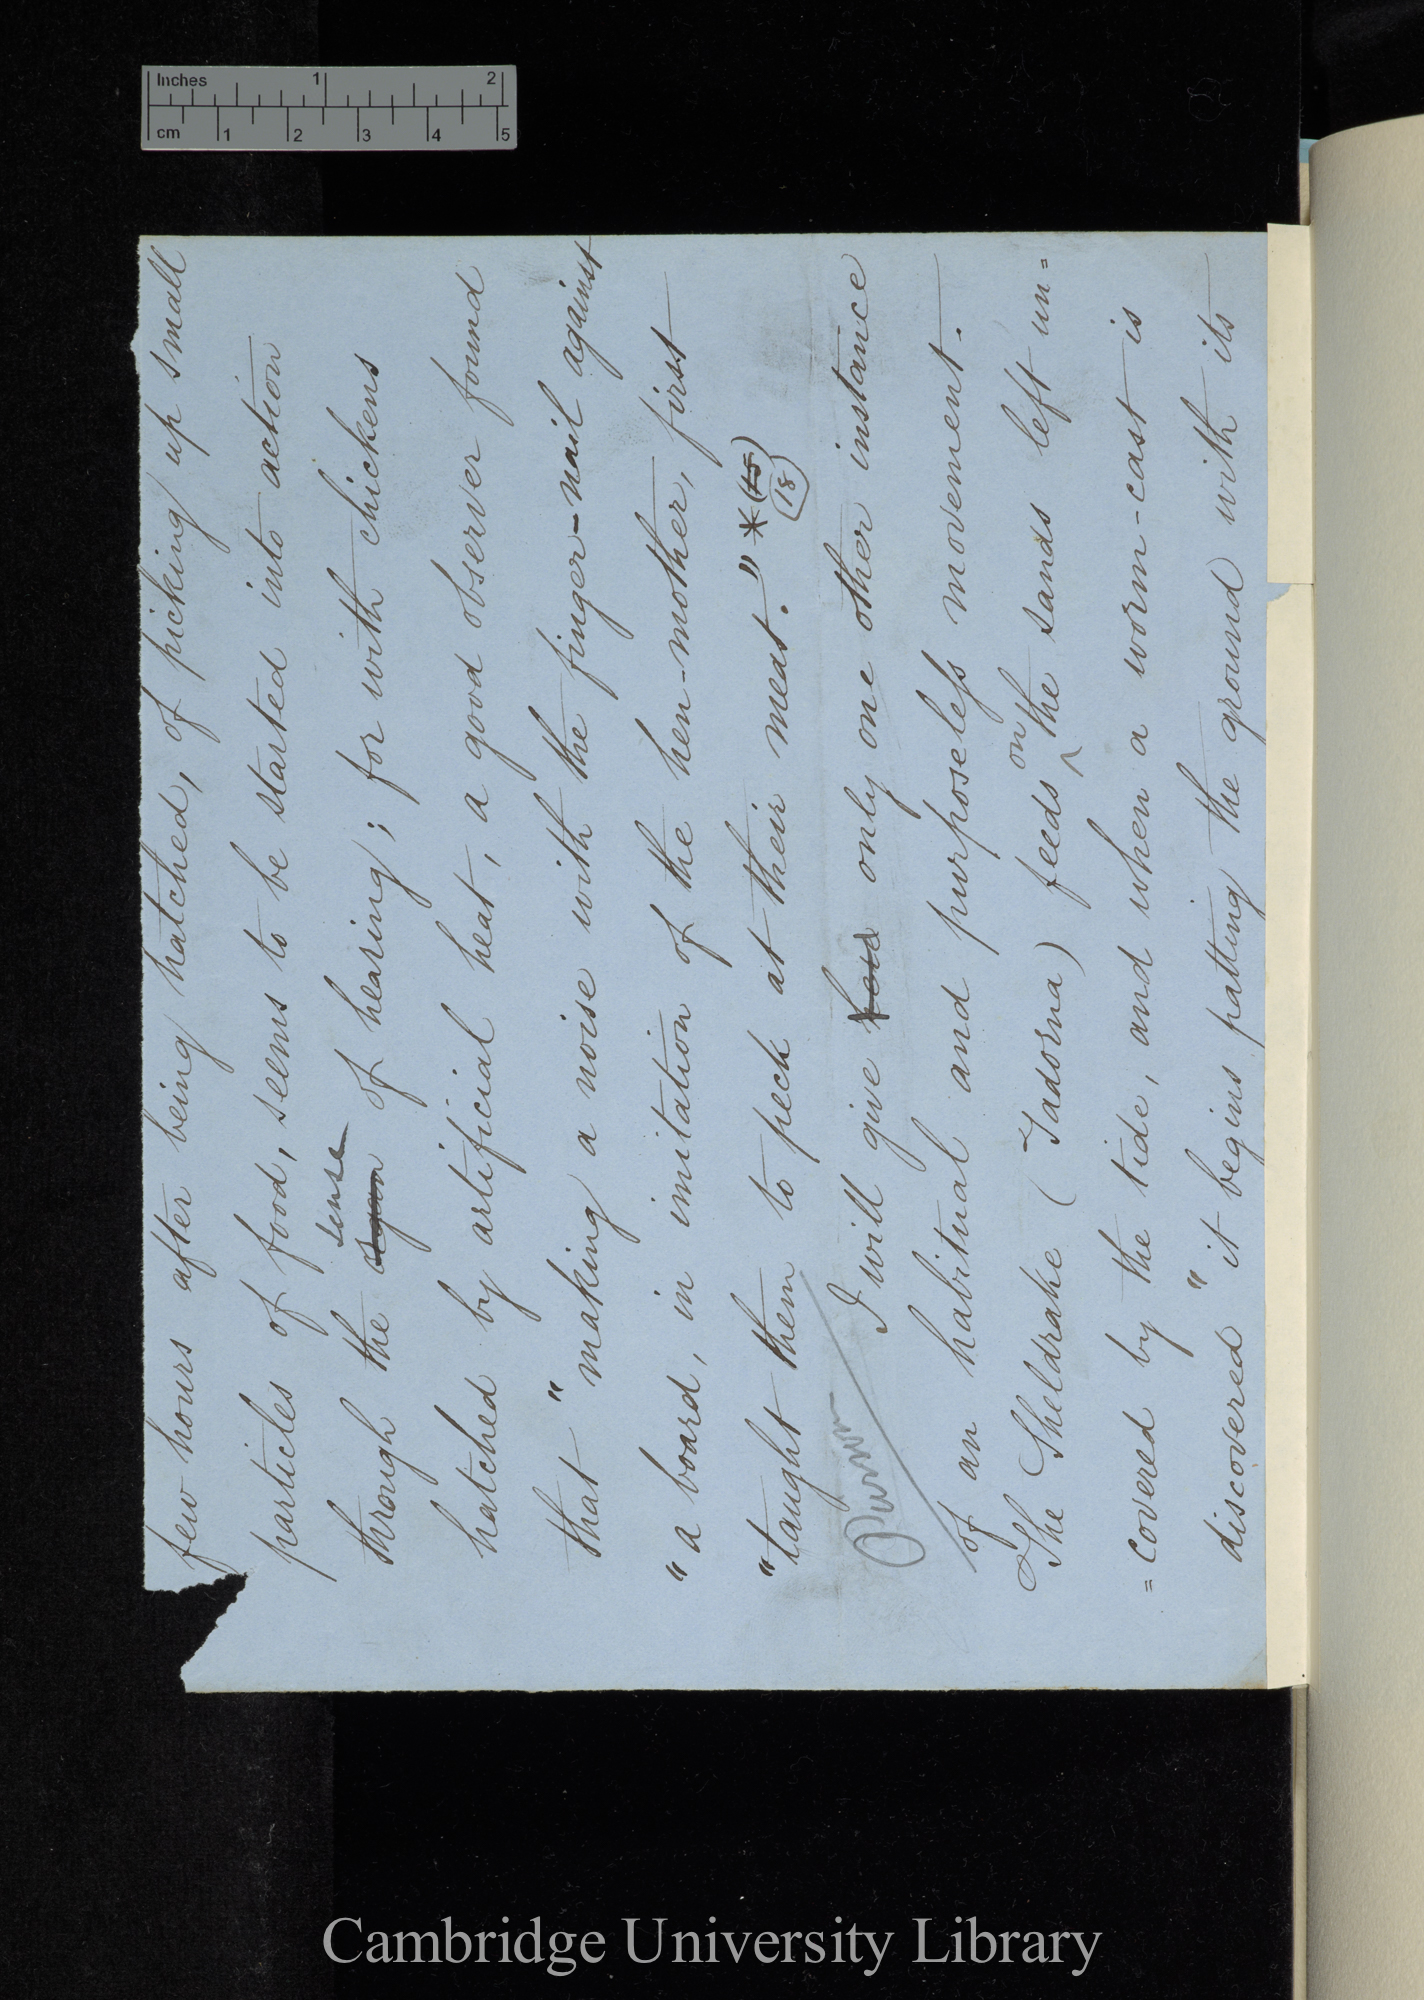 Inches 1 2
cm 1 2 3 4 5
few hours after being hatched, of picking up small
particles of food, seems to be started into action
sense
through the organ of hearing; for with chickens
hatched by artificial heat, a good observer found
that "making a noise with the finger-nail against
"a board, in imitation of the hen-mother, first
"taught them to peck at their meat." * (15)
18
I will give here only one other instance
of an habitual and purposeless movement.
on
The Sheldrake (Tadorna) feeds ^ the sands left un=
=covered by the tide, and when a worm-cast is
discovered "it begins patting the ground with its
Cambridge University Library